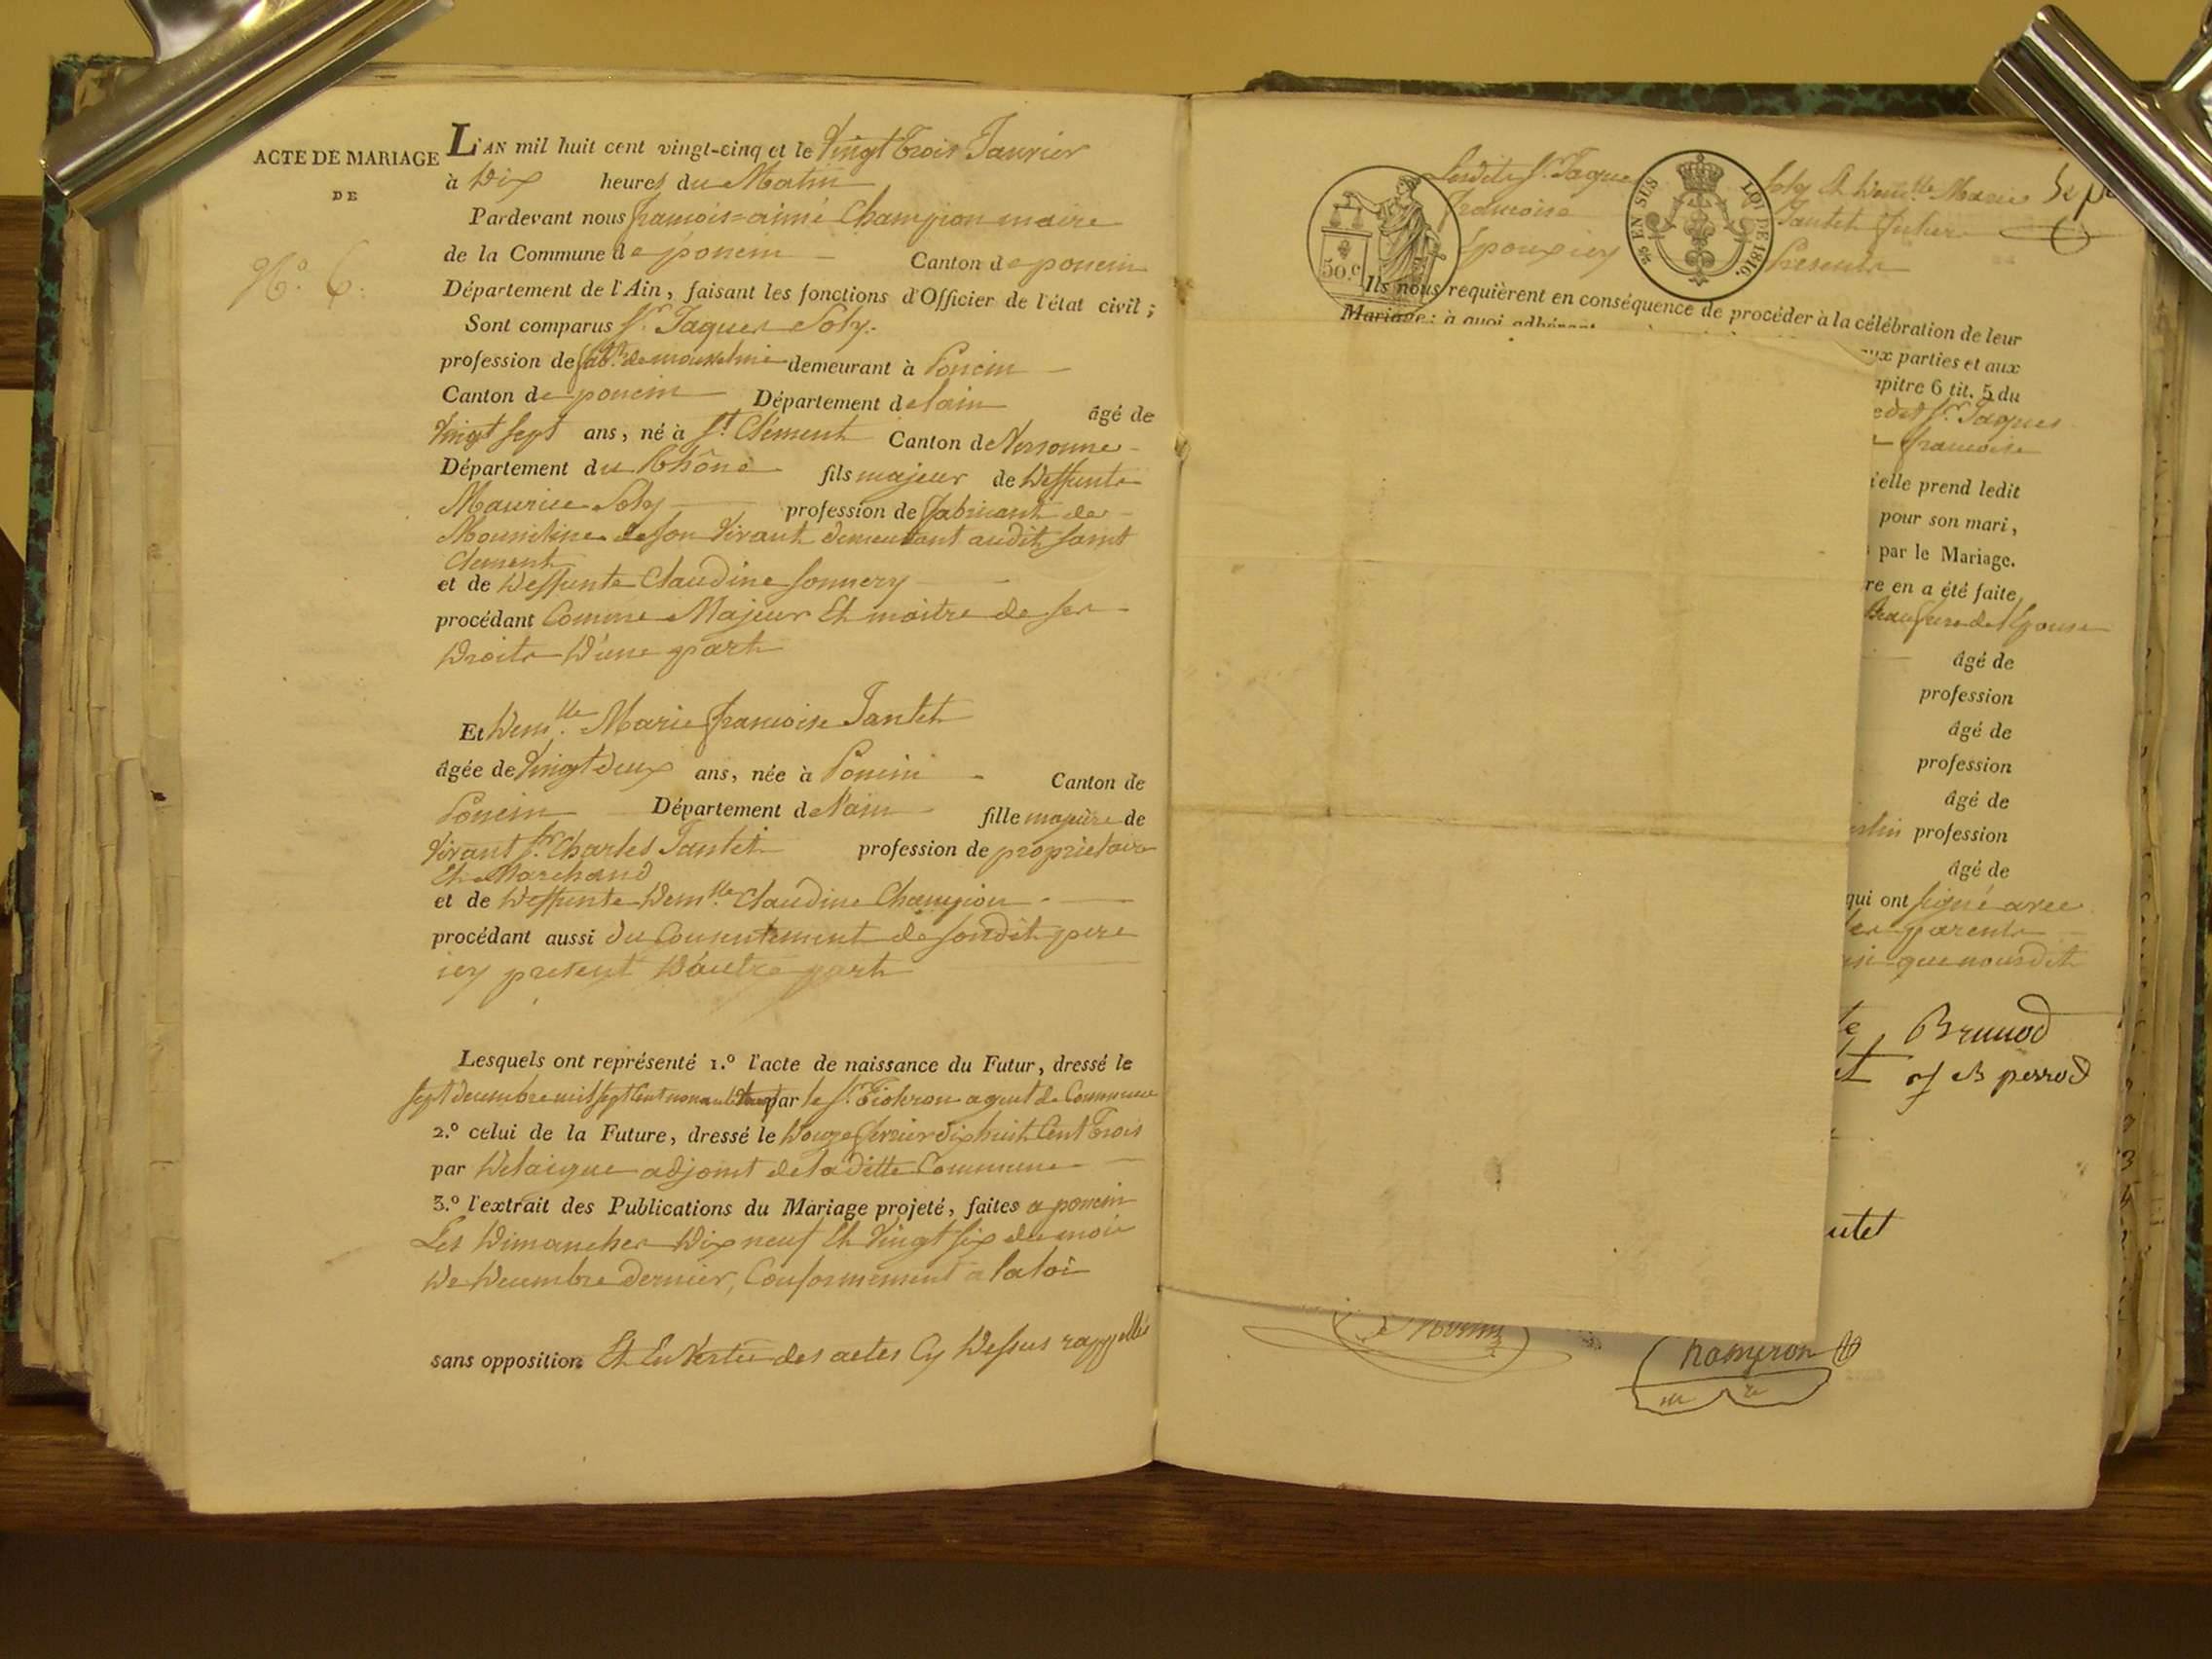 ACTE DE MARIAGE
DE
N.o 6.
L'AN mil huit cent vingt-cinq et le Vingt trois Janvier
à Dix heures du Matin
Pardevant nous françois=aimé Champion maire
de la Commune de poncin Canton de poncin
Département de l'Ain, faisant les fonctions d'Officier de l'état civil;
Sont comparus Sr. Jaques Soly.
profession de fabt. de mousseline demeurant à Poncin
Canton de poncin Département de lain âgé de
Vingt sept ans, né à St. Clément Canton de
Département du Rhône fils majeur de Deffunte
Maurice Soly profession de fabricant de
Mousseline de son Vivant demeurant audit saint
Clement
et de Deffunte Claudine Sonnery
procédant Comme Majeur Et maitre de ses
Droits D'une part
Et Demlle. Marie françoise Jantet
âgée de Vingt deux ans, née à Poncin Canton de
Poncin Département de l'ain fille majeure de
Vivant Sr. Charles Jantet profession de propriétaire
Et Marchand
et de Deffunte Demlle. Claudine Champion
procédant aussi du Consentement de sondit pere
icy present D'autre part
Lesquels ont représenté 1.o l'acte de naissance du Futur, dressé le
sept decembre mil sept Cent par le Sr. agent de Commune
2.o celui de la Future, dressé le Douze fevrier dix huit Cent Trois
par Delaigue adjoint de la ditte Commune
3.o l'extrait des Publications du Mariage projeté, faites a poncin
Les Dimanches Dix neuf Et Vingt six du mois
De Decembre Dernier, Conformement a la loi
sans opposition Et En Vertu des actes Cy Dessus rappellés
Lesdits Sr. Jaques Soly Et Demlle. Marie
francoise Jantet futurs
Epoux icy Presents
50.c
5/10 EN SUS LOI DE 1816.
Ils nous requièrent en conséquence de procéder à la célébration de leur
Mariage: à quoi adhérant
aux parties et aux
apitre 6 tit. 5 du
ledit Sr. Jaques
francoise
'elle prend ledit
pour son mari,
par le Mariage.
re en a été faite
Beaufrere de l'Epouse
âgé de
profession
âgé de
profession
âgé de
profession
âgé de
qui ont signé avec
les parents
que nousdit
Brunod
perrod
utet
Champion